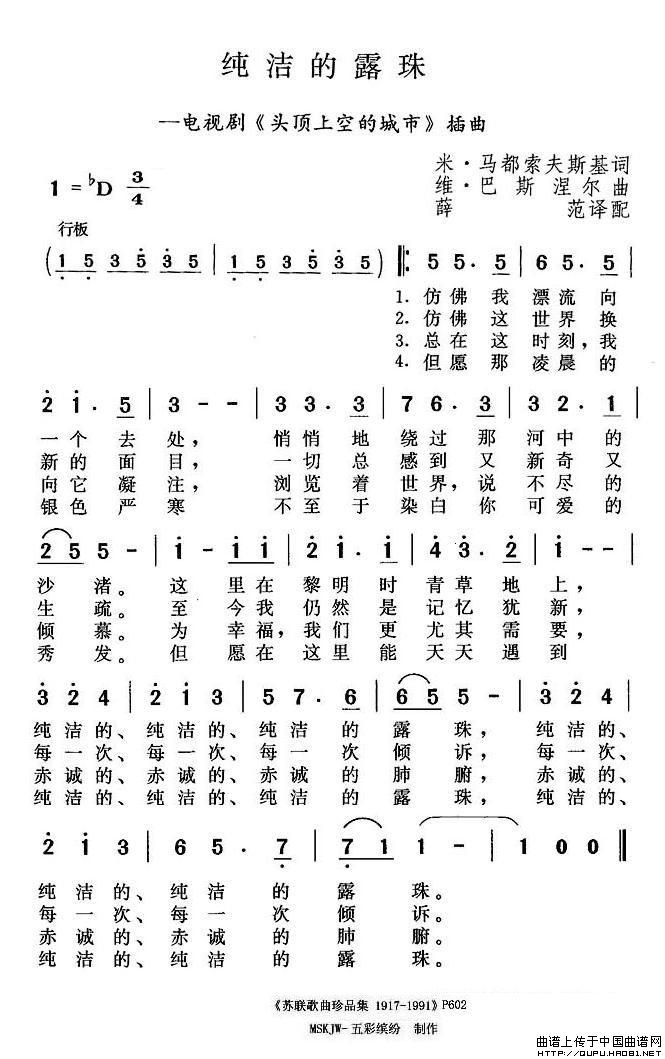 纯洁的露珠
—电视剧《头顶上空的城市》插曲
米·马都索夫斯基词
1=♭D 3/4
维·巴斯涅尔曲
薛范译配
行板
(1 5 3 5 3 5 | 1 5 3 5 3 5) |: 5 5. 5 | 6 5. 5 |
1. 仿佛我漂流向
2. 仿佛这世界换
3. 总在这时刻，我
4. 但愿那凌晨的
2 1. 5 | 3 - - | 3 3. 3 | 7 6. 3 | 3 2. 1 |
一个去处， 悄悄地绕过那河中的
新的面目， 一切总感到又新奇又
向它凝注， 浏览着世界，说不尽的
银色严寒 不至于染白你可爱的
2 5 5 - | 1 - 1 1 | 2 1. 1 | 4 3. 2 | 1 - - |
沙渚。这里在黎明时青草地上，
生疏。至今我仍然是记忆犹新，
倾慕。为幸福，我们更尤其需要，
秀发。但愿在这里能天天遇到
3 2 4 | 2 1 3 | 5 7. 6 | 6 5 5 - | 3 2 4 |
纯洁的、纯洁的、纯洁的露珠，纯洁的、
每一次、每一次、每一次倾诉，每一次、
赤诚的、赤诚的、赤诚的肺腑，赤诚的、
纯洁的、纯洁的、纯洁的露珠，纯洁的、
2 1 3 | 6 5. 7 | 7 1 1 - | 1 0 0 ‖
纯洁的、纯洁的露珠。
每一次、每一次倾诉。
赤诚的、赤诚的肺腑。
纯洁的、纯洁的露珠。
《苏联歌曲珍品集 1917-1991》P602
MSKJW-五彩缤纷 制作
曲谱上传于中国曲谱网
http://QUPU.HAO81.NET